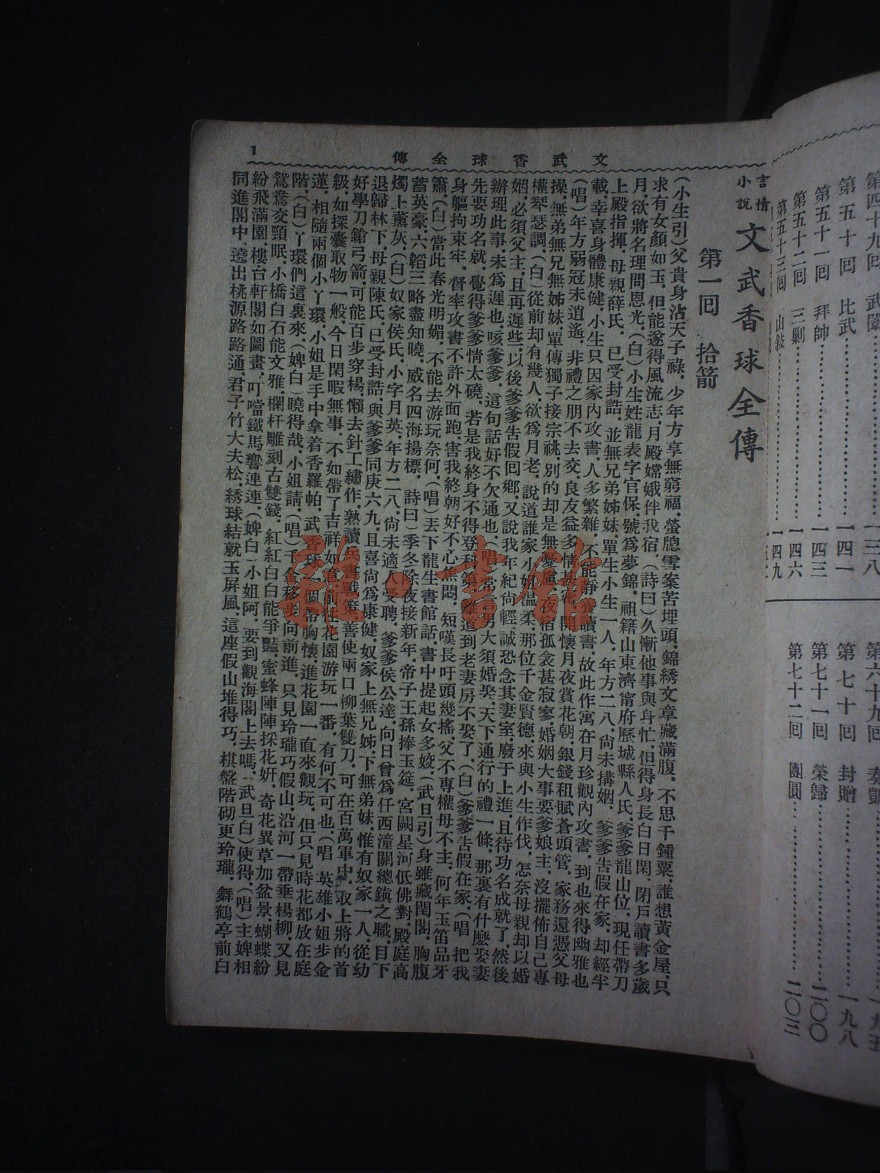 文武香球全傳
1
言情小說 文武香球全傳
第一回 拾箭
(小生引)父貴身沾天子祿，少年方享無窮福，螢牕雪案苦埋頭，錦綉文章藏滿腹，不思千鍾粟，誰想黃金屋，只
求有女顏如玉，但能遂得風流志，月殿嫦娥伴我宿，(詩曰)久漸他事與身忙，但得身長白日閑，閉戶讀書多歲
月，欲將名理問恩光，(白)小生姓龍表字官保，號爲夢錦，祖籍山東濟甯府歷城縣人氏，爹爹龍山位，現任帶刀
上殿指揮，母親薛氏，已受封誥，並無兄弟姊妹，單生小生一人，年方二八，尙未搆姻，爹爹告假在家，却經半
載，幸喜身體康健，小生只因家內攻書，人多繁雜，不能靜心讀書，故此作寓在月珍觀內攻書，到也來得幽雅也，
(唱)年方弱冠未逍遙，非禮之朋不去交，良友益多情
操，無弟無兄無姊妹，單傳獨子接宗祧，別的却是無憂慮，夜宿孤衾甚寂寥，婚姻大事要爹娘主，沒擺佈自己專
權琴瑟調，(白)從前却有幾人，欲爲月老，說道誰家小姐溫柔，那位千金賢德，來與小生作伐，怎奈母親却以婚
姻，必須父主，且再遲些，以後爹爹告假囘鄉，又說我年紀尙輕，誠恐念其妻室，廢于上進，且待功名成就了，然後
辦理此事，未爲遲也，咳，爹爹，這句話好不欠通也，
先要功名就，覺得爹爹情太磽，若是我終身不得登科第，難道到老妻房不娶了，(白)爹爹告假在家，(唱)把我
身軀拘束牢，督率攻書不許外面跑，害我終朝好不心焦悶，短嘆長吁頭幾搖，父不專權母不主，何年玉笛品牙
簫，(白)當此春光明媚，不能去游玩奈何，(唱)丟下龍生書館話，書中提起女多姣，(武旦引)身雖藏閨閣，胸腹
蓄英豪，六韜三略盡知曉，威名四海揚標，(詩曰)季冬除夜接新年，帝子王孫捧玉筵，宮闕星河低佛對，殿庭高
燭上薰灰，(白)奴家侯氏，小字月英，年方二八，尙未適人受聘，爹爹侯公達，向日曾爲仟西潼關總鎭之職，目下
退歸林下，母親陳氏，已受封誥，與爹爹同庚六九，且喜尙爲康健，奴家上無兄姊，下無弟妹，惟有奴家一人，從幼
好學刀鎗弓箭，可能百步穿楊，懶去針工繡作，熟讀兵書戰策，善使兩口柳葉雙刀，可在百萬軍中，取上將的首
級，如探囊取物一般，今日閑暇無事，不如帶了吉祥如意，前往花園游玩一番，有何不可也，(唱)英雄小姐步金
蓮，相隨兩個小丫環，小姐是手中拿着香羅帕，武香球一個帶胸懷，進花園一直來觀玩，但只見時花都放在庭
階，(白)丫環們這裏來，(婢白)曉得哉，小姐請，(唱)千金移步向前進，只見玲瓏巧假山，沿河一帶垂楊柳，又見
鴛鴦交頸眠，小橋白石能文雅，欄杆雕刻古雙錢，紅紅白白能爭艷，蜜蜂陣陣採花姸，奇花異草加盆景，蝴蝶紛
紛飛滿園，樓台軒閣如圖畫，叮噹鐵馬響連連，(婢白)小姐阿，要到觀海閣上去嗎，(武旦白)使得，(唱)主婢相
同進閣中，遶出桃源路路通，君子竹大夫松，綉球結就玉屏風，這座假山堆得巧，棋盤階砌更玲瓏，舞鶴亭前白
第五十回 比武……一四一
第五十一回 拜帥……一四三
第五十二回 三剿……一四六
第五十三回
第七十回 封贈……一九八
第七十一回 榮歸……二〇〇
第七十二回 團圓……二〇三
雜·書館